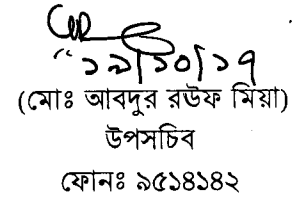 ১৯/১০/১৭
(মোঃ আবদুর রউফ মিয়া)
উপসচিব
ফোনঃ ৯৫১৪১৪২